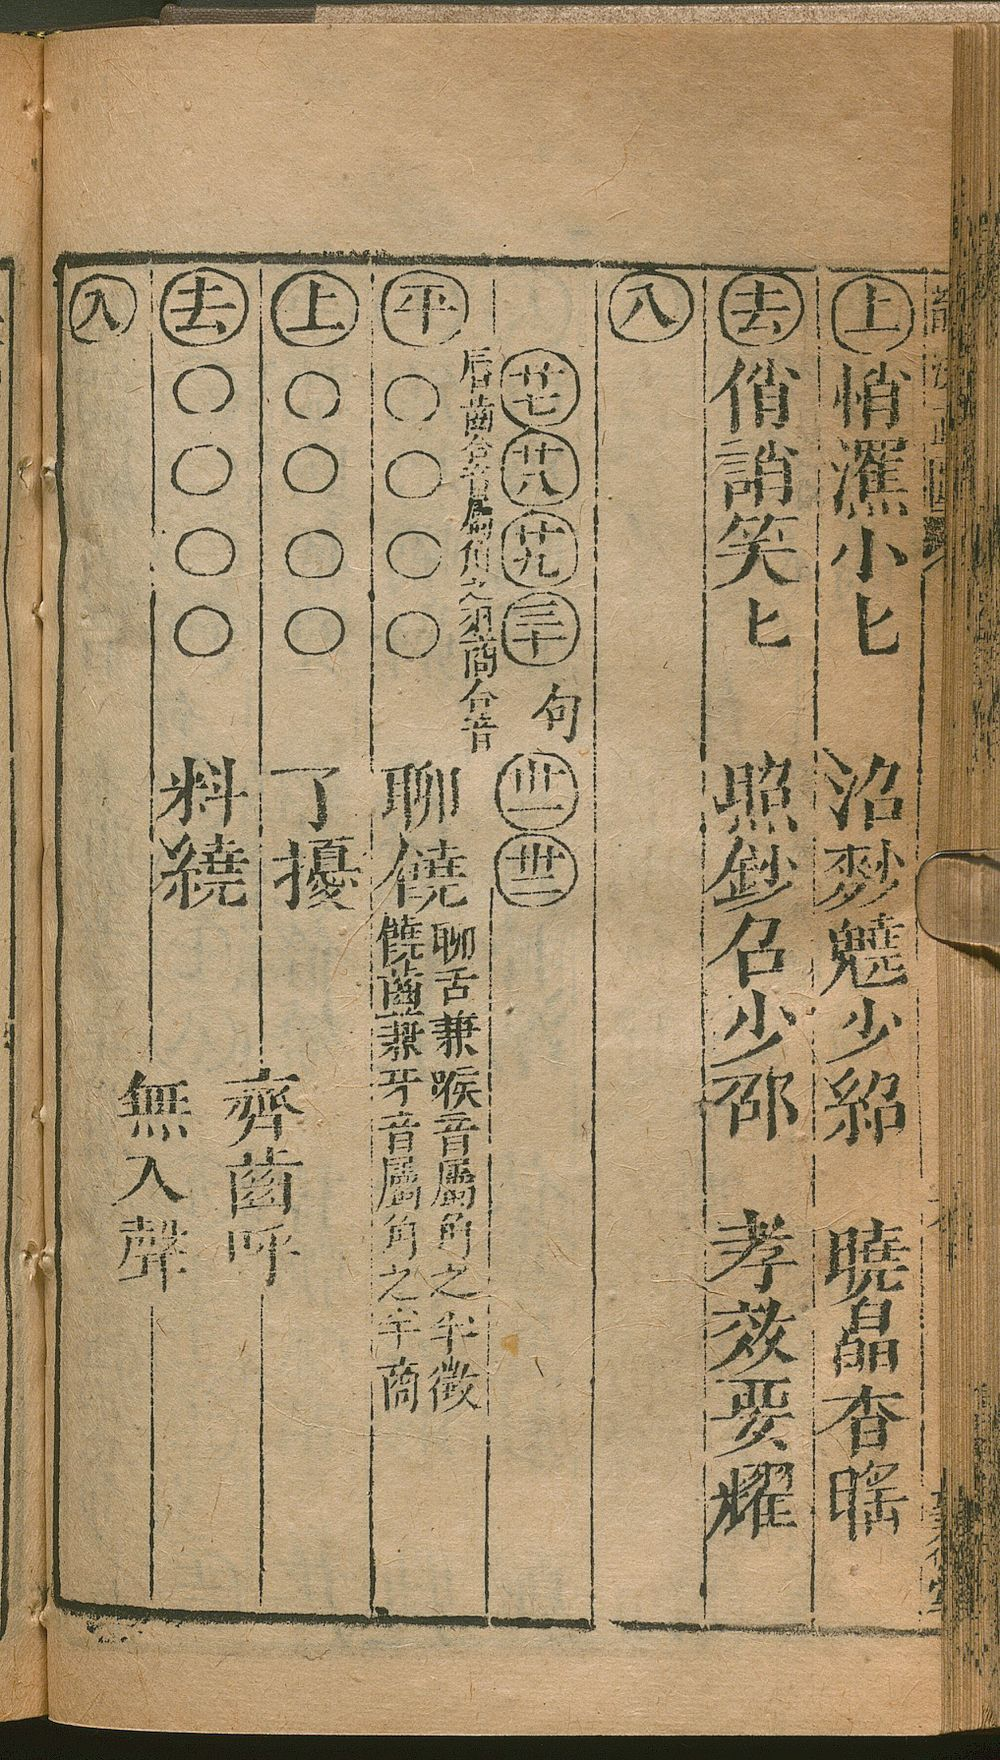 上 悄灊小匕 沼麨魈少紹 曉皛杳𥇇
去 俏誚笑匕 照鈔召少邵 孝效要耀
入
廿七 廿八 廿九 三十 句 卅一 卅二
唇齒合音屬宮之羽商合音
平 ○○○○ 聊饒 聊舌兼喉音屬角之半徵
饒齒兼牙音屬角之半商
上 ○○○○ 了擾
齊齒呼
去 ○○○○ 料繞
無入聲
入